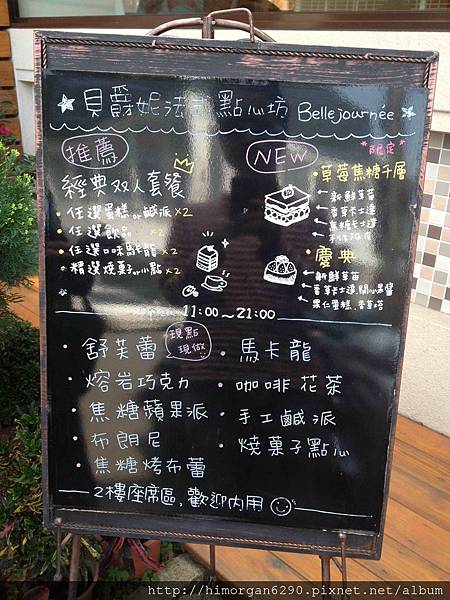 貝爵妮法式點心坊 Bellejournée
推薦
經典双人套餐
・任選蛋糕or鹹派 x2
・任選飲品 x2
・任選口味馬卡龍 x2
・精選燒菓子or小點 x2
NEW
"限定"
・草莓焦糖千層
新鮮草莓
香草卡士達
焦糖卡士達
・慶典
新鮮草莓
香草卡士達、開心果醬
果仁蛋糕、香草塔
11:00～21:00
・舒芙蕾
現點
現做
・熔岩巧克力
・焦糖蘋果派
・布朗尼
・焦糖烤布蕾
・馬卡龍
・咖啡 花茶
・手工鹹派
・燒菓子點心
2樓座席區,歡迎內用
http://himorgan6290.pixnet.net/album